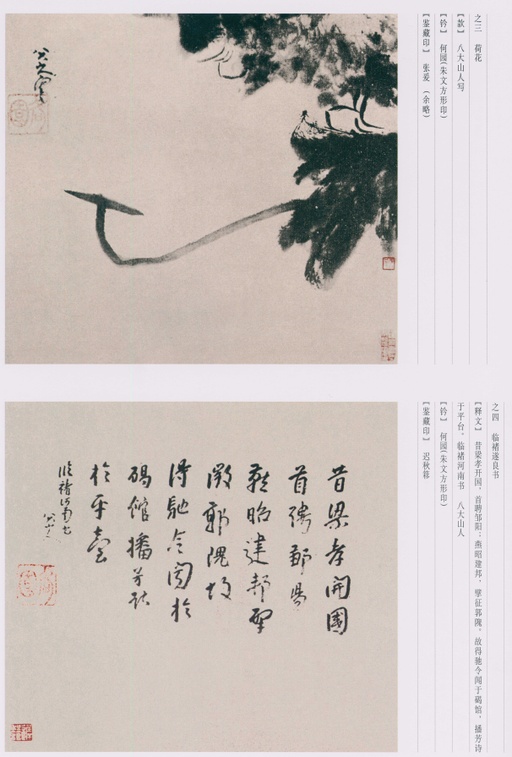 之三　荷花
【款】 八大山人写
【钤】 何园(朱文方形印)
【鉴藏印】 张爰 (余略)
八大山人写
之四　临褚遂良书
【释文】 昔梁孝开国，首聘邹阳；燕昭建邦，肇征郭隗，故得驰令闻于碣馆，播芳诗
于平台。临褚河南书　八大山人
【钤】 何园(朱文方形印)
【鉴藏印】 迟秋簃
昔梁孝開國
首聘鄒陽
燕昭建邦肇
徵郭隗故
得馳令聞於
碣館播芳詩
於平臺
臨褚河南書
八大山人